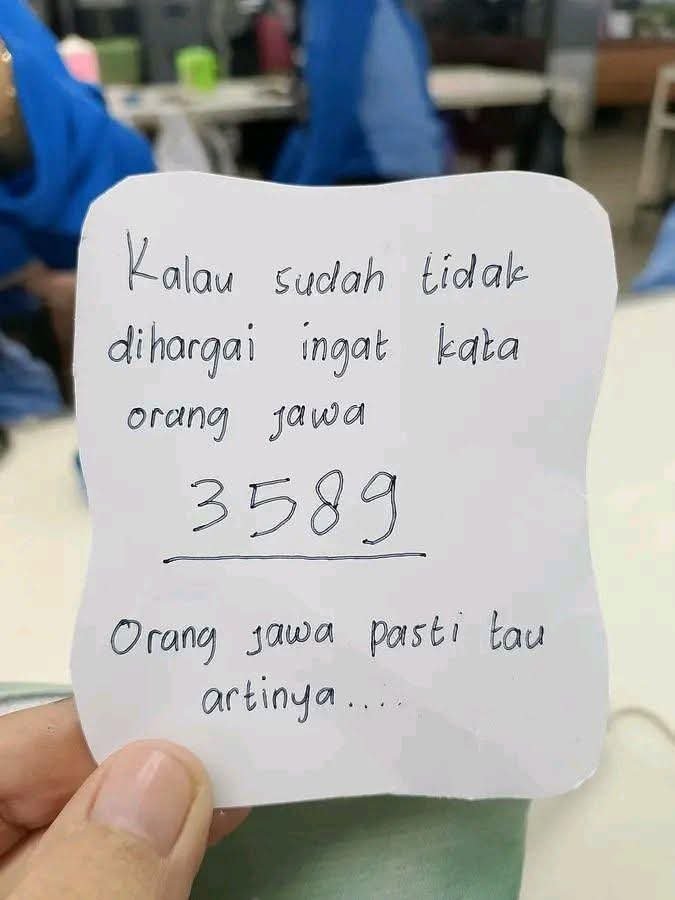 Kalau sudah tidak
dihargai ingat kata
orang jawa
3589
Orang jawa pasti tau
artinya....